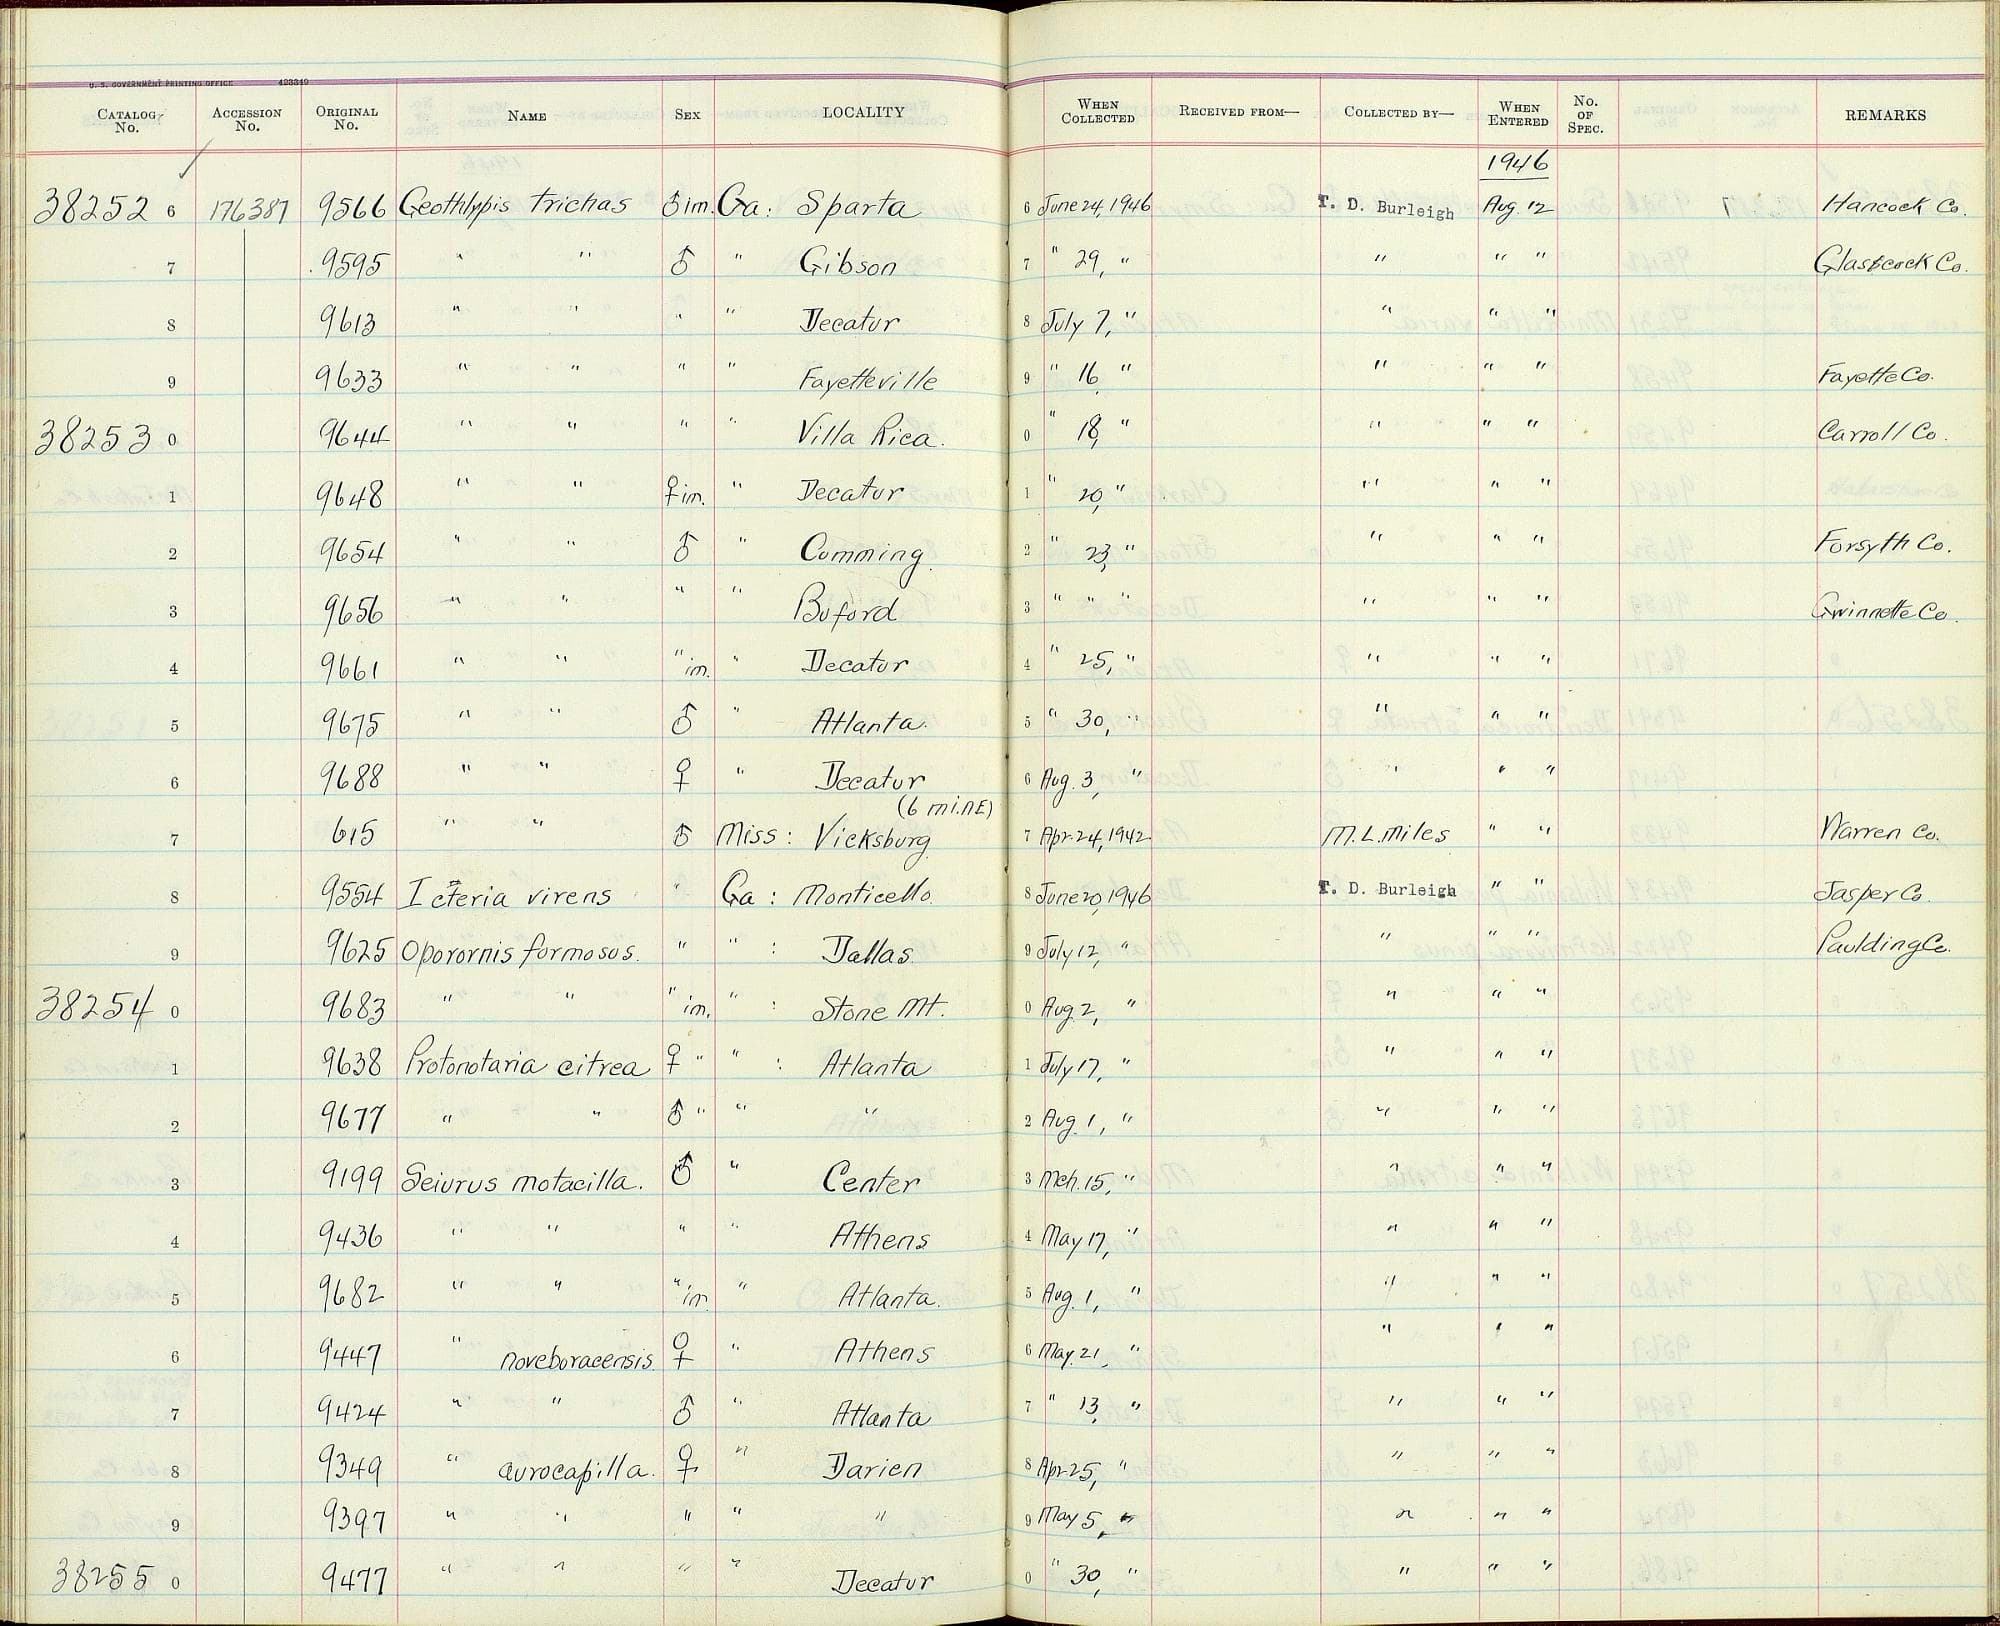 U. S. GOVERNMENT PRINTING OFFICE 423349
CATALOG No. ACCESSION No. ORIGINAL No. NAME SEX LOCALITY WHEN COLLECTED RECEIVED FROM— COLLECTED BY— WHEN ENTERED No. OF SPEC. REMARKS
1946
38252 6 176387 9566 Geothlypis trichas ♂ im. Ga: Sparta 6 June 24, 1946 T. D. Burleigh Aug. 12 Hancock Co.
7 9595 " " ♂ " Gibson 7 " 29, " " " " Glascock Co.
8 9613 " " " " Decatur 8 July 7, " " " "
9 9633 " " " " Fayetteville 9 " 16, " " " " Fayette Co.
38253 0 9644 " " " " Villa Rica. 0 " 18, " " " " Carroll Co.
1 9648 " " ♀ im. " Decatur 1 " 20, " " " "
2 9654 " " ♂ " Cumming. 2 " 23, " " " " Forsyth Co.
3 9656 " " " " Buford 3 " " " " " " Gwinnette Co.
4 9661 " " " im. " Decatur 4 " 25, " " " "
5 9675 " " ♂ " Atlanta. 5 " 30, " " " "
6 9688 " " ♀ " Decatur 6 Aug. 3, " " " "
(6 mi. NE)
7 615 " " ♂ Miss: Vicksburg 7 Apr. 24, 1942 M. L. Miles " " Warren Co.
8 9554 Icteria virens " Ga: Monticello. 8 June 20, 1946 T. D. Burleigh " " Jasper Co.
9 9625 Oporornis formosus. " " : Dallas. 9 July 12, " " " " Paulding Co.
38254 0 9683 " " " im. " : Stone Mt. 0 Aug. 2, " " " "
1 9638 Protonotaria citrea ♀ " " : Atlanta 1 July 17, " " " "
2 9677 " " ♂ " " " 2 Aug. 1, " " " "
3 9199 Seiurus motacilla. ♂ " Center 3 Mch. 15, " " " "
4 9436 " " " " Athens 4 May 17, " " " "
5 9682 " " " im. " Atlanta. 5 Aug. 1, " " " "
6 9447 " noveboracensis. ♀ " Athens 6 May. 21, " " " "
7 9424 " " ♂ " Atlanta 7 " 13, " " " "
8 9349 " aurocapilla. ♀ " Darien 8 Apr. 25, " " " "
9 9397 " " " " " 9 May 5, " " " "
38255 0 9477 " " " " Decatur 0 " 30, " " " "